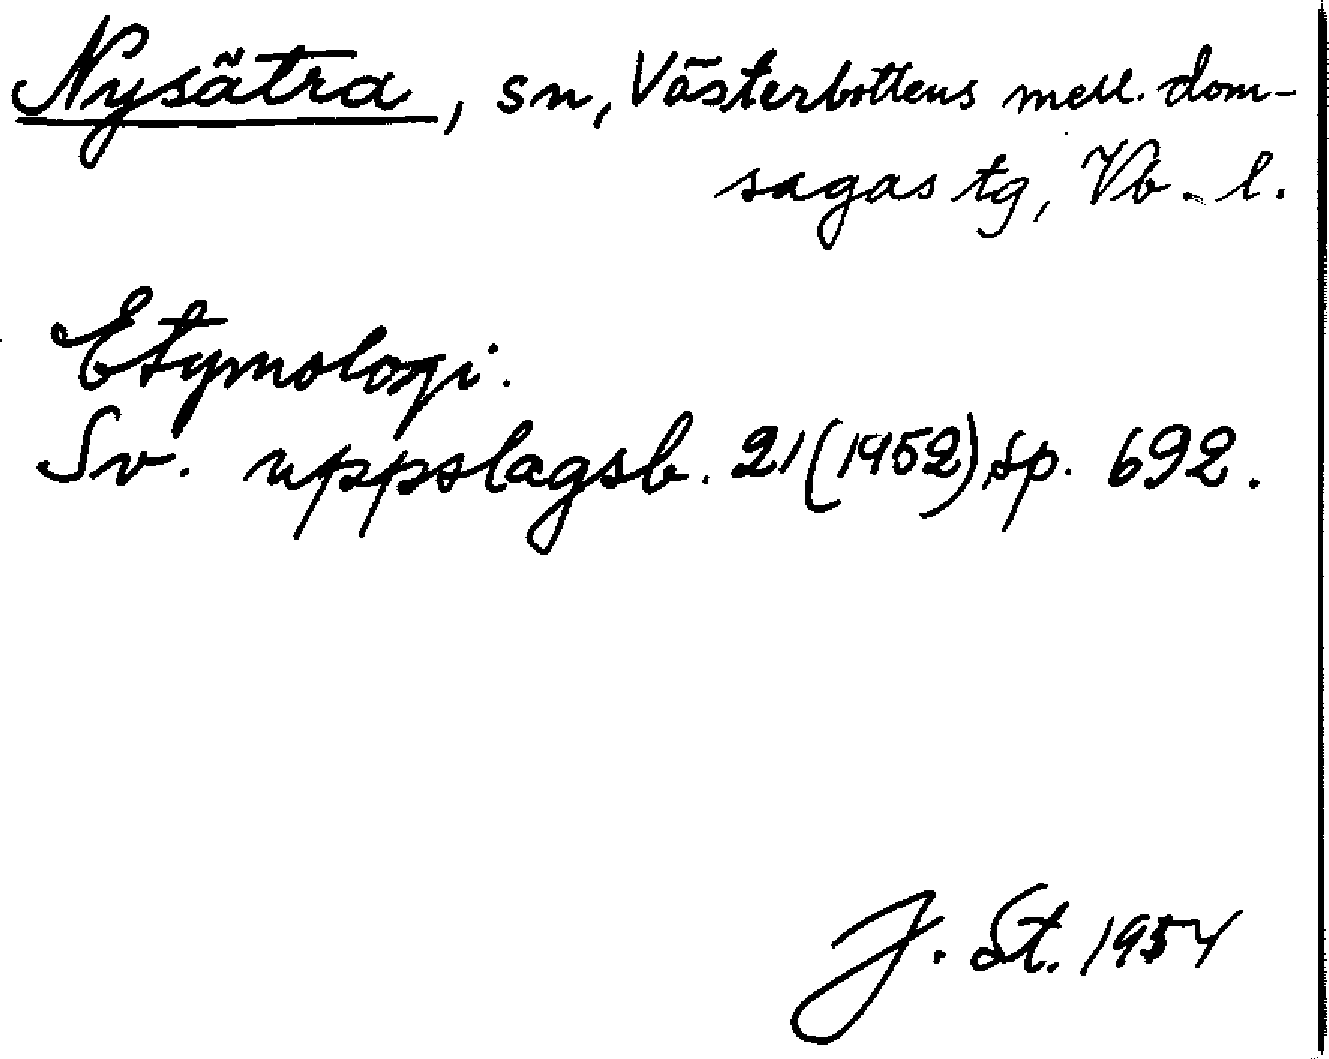 Nysätra, sn, Västerbottens mell. dom-
sagas tg, Vb. l.
Etymologi.
Sv. uppslagsb. 21 (1952) sp. 692.
J. St. 1954